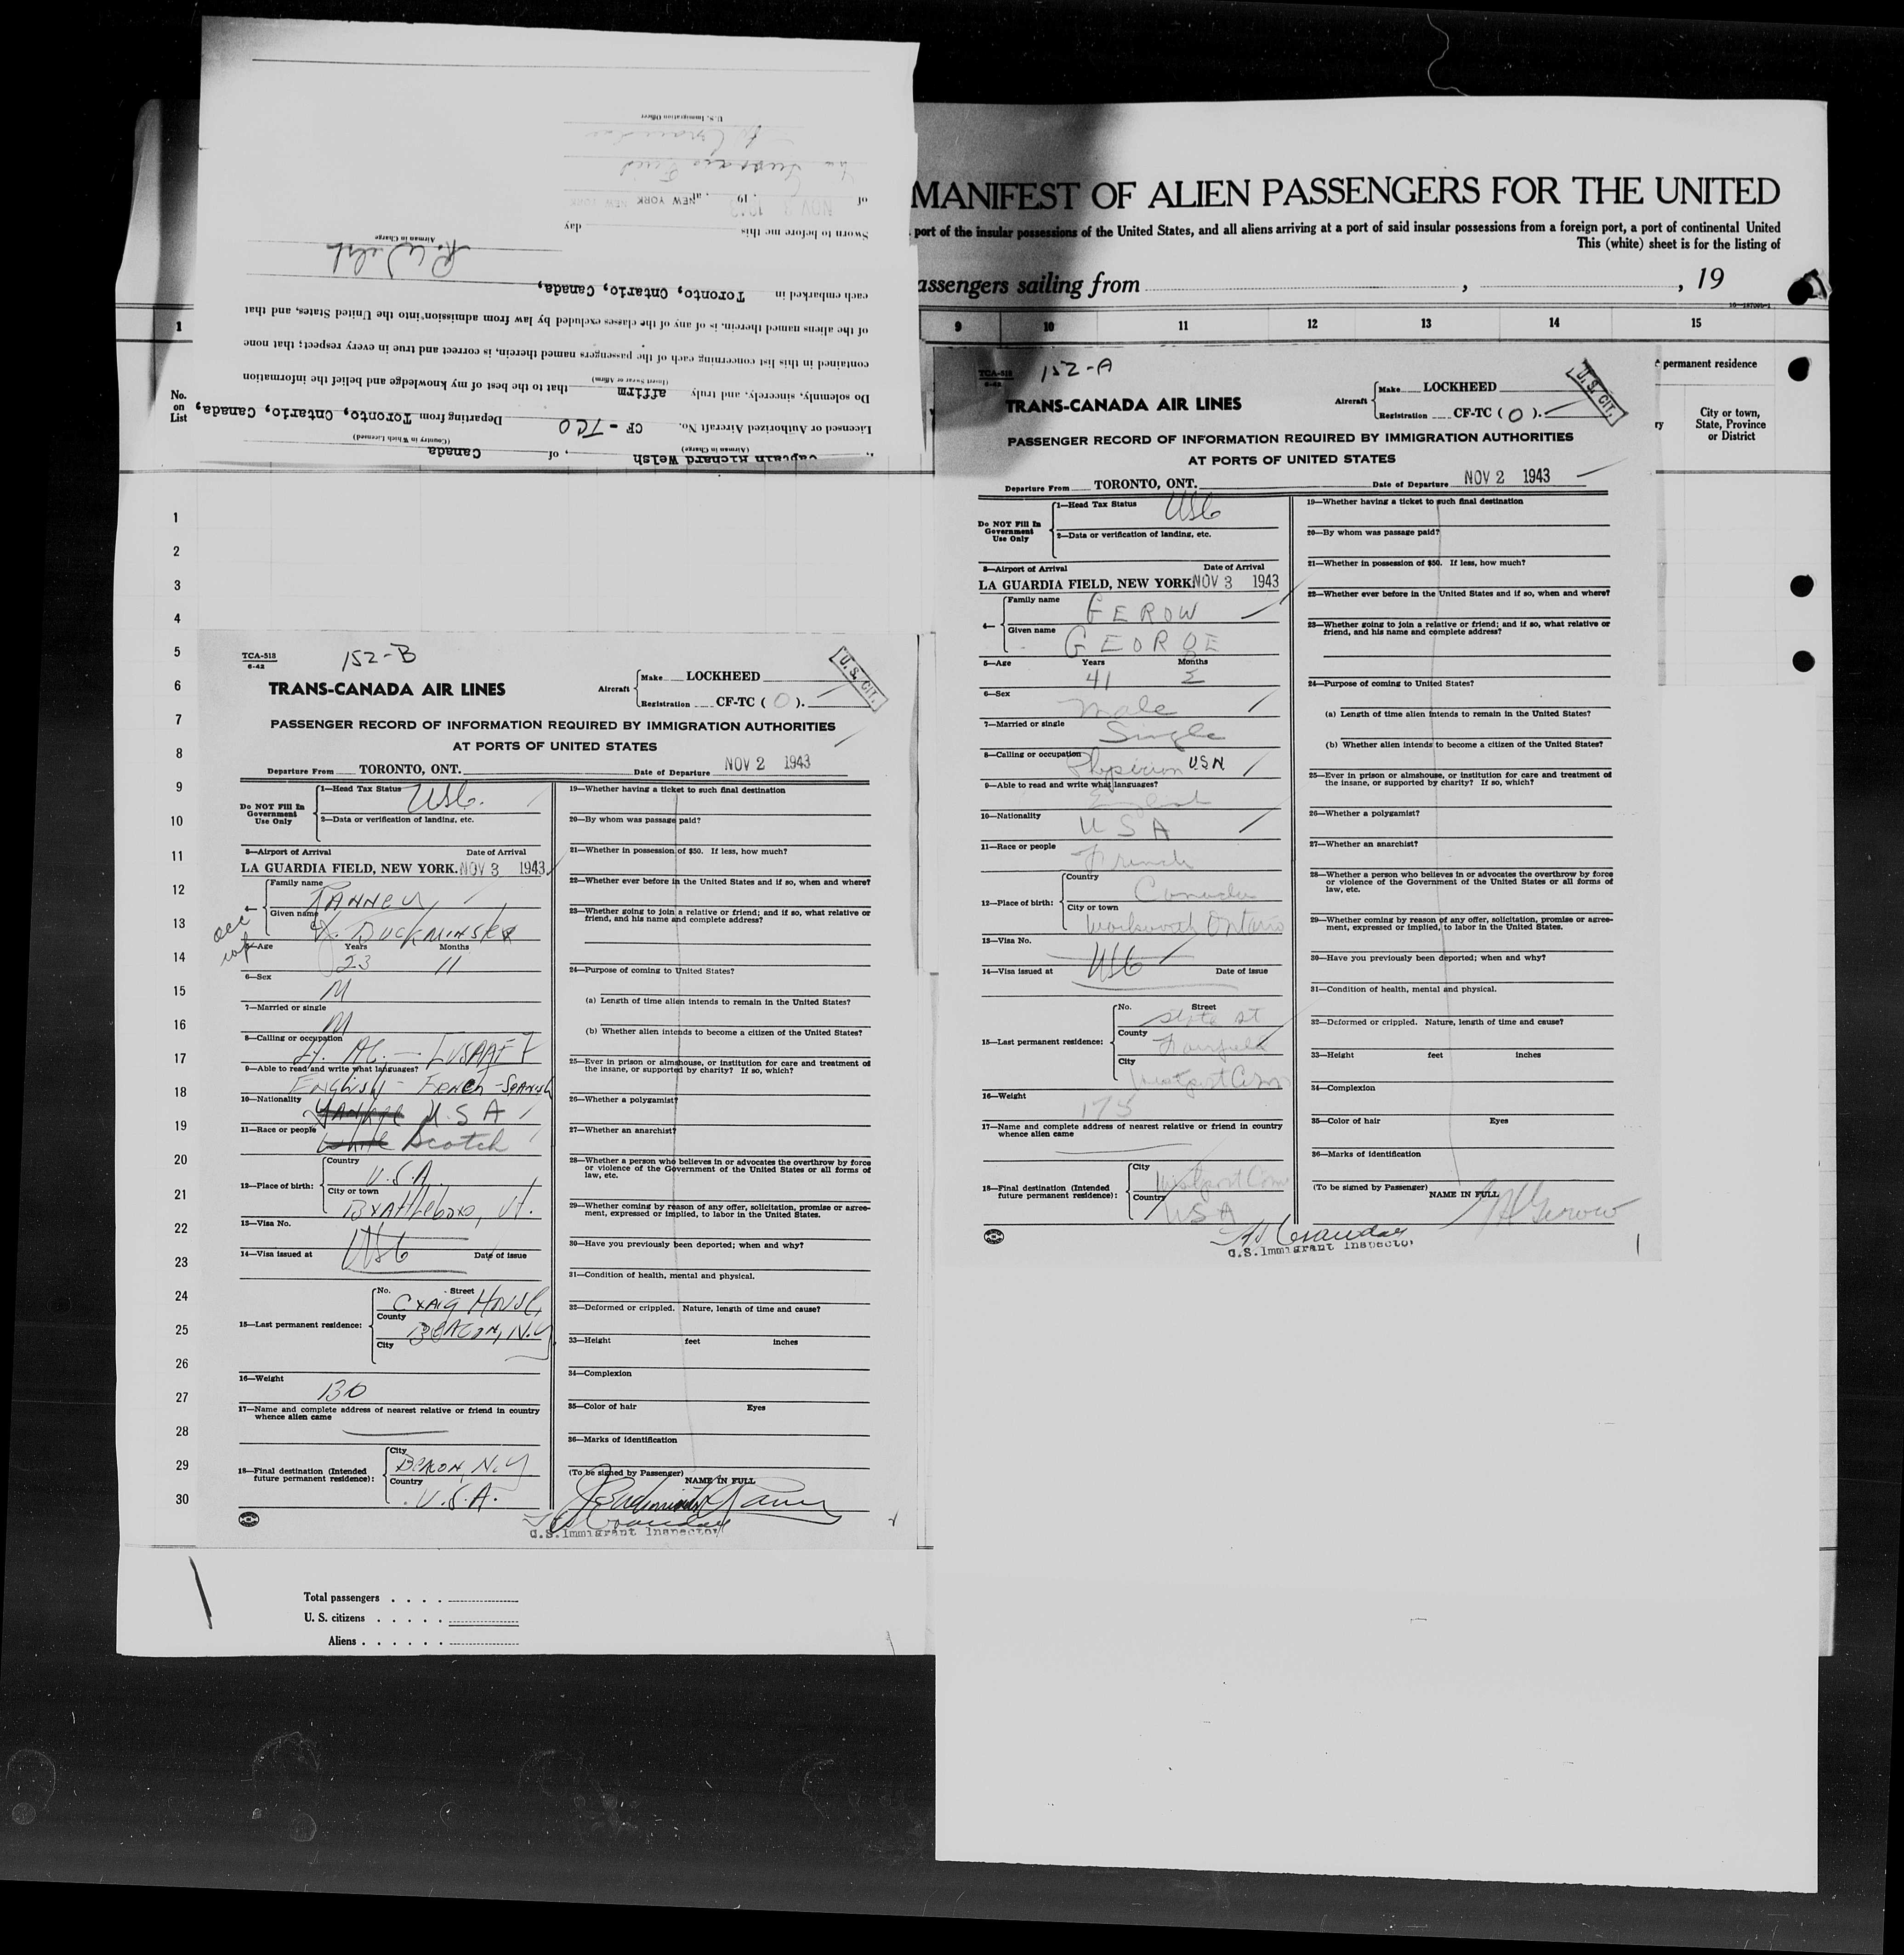 U.S. Immigration Officer
of NOV 3 1943, 19 , at NEW YORK
Sworn to before me this day
Airman in Charge
R. Welsh
each embarked in Toronto, Ontario, Canada,
of the aliens named therein, is of any of the classes excluded by law from admission into the United States, and that
contained in this list concerning each of the passengers named therein, is correct and true in every respect; that none
(Insert Swear or Affirm)
Do solemnly, sincerely, and truly affirm that to the best of my knowledge and belief the information
Licensed or Authorized Aircraft No. CF-TCO Departing from Toronto, Ontario, Canada,
(Airman in Charge) (Country in Which Licensed)
Captain Richard Welsh, of Canada
MANIFEST OF ALIEN PASSENGERS FOR THE UNITED
port of the insular possessions of the United States, and all aliens arriving at a port of said insular possessions from a foreign port, a port of continental United
This (white) sheet is for the listing of
assengers sailing from , , 19
1 9 10 11 12 13 14 15
permanent residence
City or town,
State, Province
or District
No.
on
List
1
2
3
4
5
6
7
8
9
10
11
12
13
14
15
16
17
18
19
20
21
22
23
24
25
26
27
28
29
30
TCA-518
6-42
152-B
U.S. CIT.
TRANS-CANADA AIR LINES
Aircraft Make LOCKHEED
Registration CF-TC ( O ).
PASSENGER RECORD OF INFORMATION REQUIRED BY IMMIGRATION AUTHORITIES
AT PORTS OF UNITED STATES
Departure From TORONTO, ONT. Date of Departure NOV 2 1943
Do NOT Fill In
Government
Use Only
1—Head Tax Status USC.
2—Data or verification of landing, etc.
3—Airport of Arrival Date of Arrival
LA GUARDIA FIELD, NEW YORK. NOV 3 1943
4— Family name RANNEY
Given name J. BUCKMINSTER
5—Age Years Months
23 11
6—Sex
M
7—Married or single
M
8—Calling or occupation
9—Able to read and write what languages?
ENGLISH - FRENCH - SPANISH
10—Nationality
U.S A
11—Race or people
White Scotch
12—Place of birth: Country
U.S.A.
City or town
BRATTLEBORO, VT.
13—Visa No.
USC
14—Visa issued at Date of issue
15—Last permanent residence: No. Street
CRAIG HOUSE,
County
BEACON, N.Y.
City
16—Weight
130
17—Name and complete address of nearest relative or friend in country
whence alien came
18—Final destination (Intended
future permanent residence):
City
BEACON, N.Y.
Country
U.S.A.
19—Whether having a ticket to such final destination
20—By whom was passage paid?
21—Whether in possession of $50. If less, how much?
22—Whether ever before in the United States and if so, when and where?
23—Whether going to join a relative or friend; and if so, what relative or
friend, and his name and complete address?
24—Purpose of coming to United States?
(a) Length of time alien intends to remain in the United States?
(b) Whether alien intends to become a citizen of the United States?
25—Ever in prison or almshouse, or institution for care and treatment of
the insane, or supported by charity? If so, which?
26—Whether a polygamist?
27—Whether an anarchist?
28—Whether a person who believes in or advocates the overthrow by force
or violence of the Government of the United States or all forms of
law, etc.
29—Whether coming by reason of any offer, solicitation, promise or agree-
ment, expressed or implied, to labor in the United States.
30—Have you previously been deported; when and why?
31—Condition of health, mental and physical.
32—Deformed or crippled. Nature, length of time and cause?
33—Height feet inches
34—Complexion
35—Color of hair Eyes
36—Marks of identification
(To be signed by Passenger) NAME IN FULL
J Buckminster Ranney
U.S. Immigrant Inspector
Total passengers
U. S. citizens
Aliens
TCA-518
6-42
152-A
U.S. CIT.
TRANS-CANADA AIR LINES
Aircraft Make LOCKHEED
Registration CF-TC ( O ).
PASSENGER RECORD OF INFORMATION REQUIRED BY IMMIGRATION AUTHORITIES
AT PORTS OF UNITED STATES
Departure From TORONTO, ONT. Date of Departure NOV 2 1943
Do NOT Fill In
Government
Use Only
1—Head Tax Status USC
2—Data or verification of landing, etc.
3—Airport of Arrival Date of Arrival
LA GUARDIA FIELD, NEW YORK NOV 3 1943
4— Family name GEROW
Given name GEORGE
5—Age Years Months
41
6—Sex
Male
7—Married or single
Single
8—Calling or occupation
Physician U.S.N
9—Able to read and write what languages?
English
10—Nationality
U S A
11—Race or people
French
12—Place of birth: Country
Canada
City or town
Warkworth Ontario
13—Visa No.
USC
14—Visa issued at Date of issue
15—Last permanent residence: No. Street
State St
County
Fairfield
City
Westport Conn
16—Weight
175
17—Name and complete address of nearest relative or friend in country
whence alien came
18—Final destination (Intended
future permanent residence):
City
Westport Conn
Country
USA
19—Whether having a ticket to such final destination
20—By whom was passage paid?
21—Whether in possession of $50. If less, how much?
22—Whether ever before in the United States and if so, when and where?
23—Whether going to join a relative or friend; and if so, what relative or
friend, and his name and complete address?
24—Purpose of coming to United States?
(a) Length of time alien intends to remain in the United States?
(b) Whether alien intends to become a citizen of the United States?
25—Ever in prison or almshouse, or institution for care and treatment of
the insane, or supported by charity? If so, which?
26—Whether a polygamist?
27—Whether an anarchist?
28—Whether a person who believes in or advocates the overthrow by force
or violence of the Government of the United States or all forms of
law, etc.
29—Whether coming by reason of any offer, solicitation, promise or agree-
ment, expressed or implied, to labor in the United States.
30—Have you previously been deported; when and why?
31—Condition of health, mental and physical.
32—Deformed or crippled. Nature, length of time and cause?
33—Height feet inches
34—Complexion
35—Color of hair Eyes
36—Marks of identification
(To be signed by Passenger) NAME IN FULL
Gerow
U.S. Immigrant Inspector